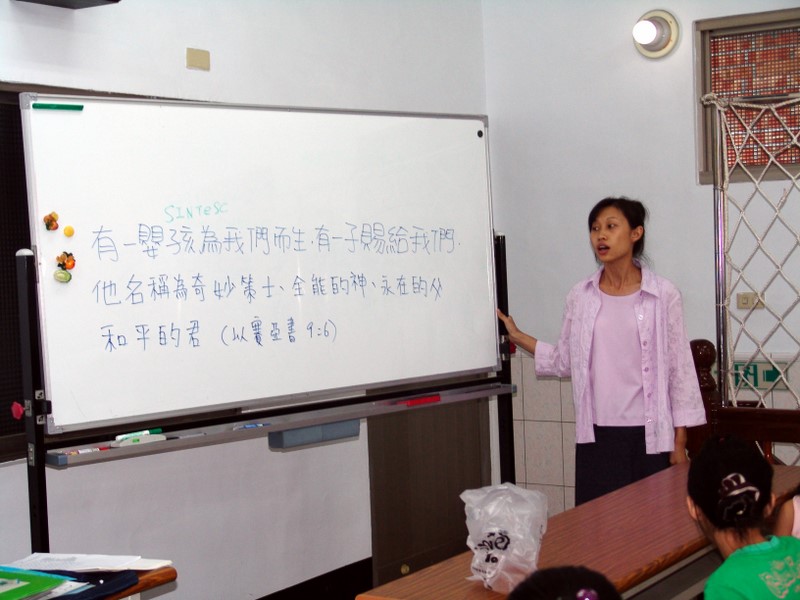 SINTeSC
有一嬰孩為我們而生.有一子賜給我們.
他名稱為奇妙策士、全能的神、永在的父
和平的君 (以賽亞書 9:6)